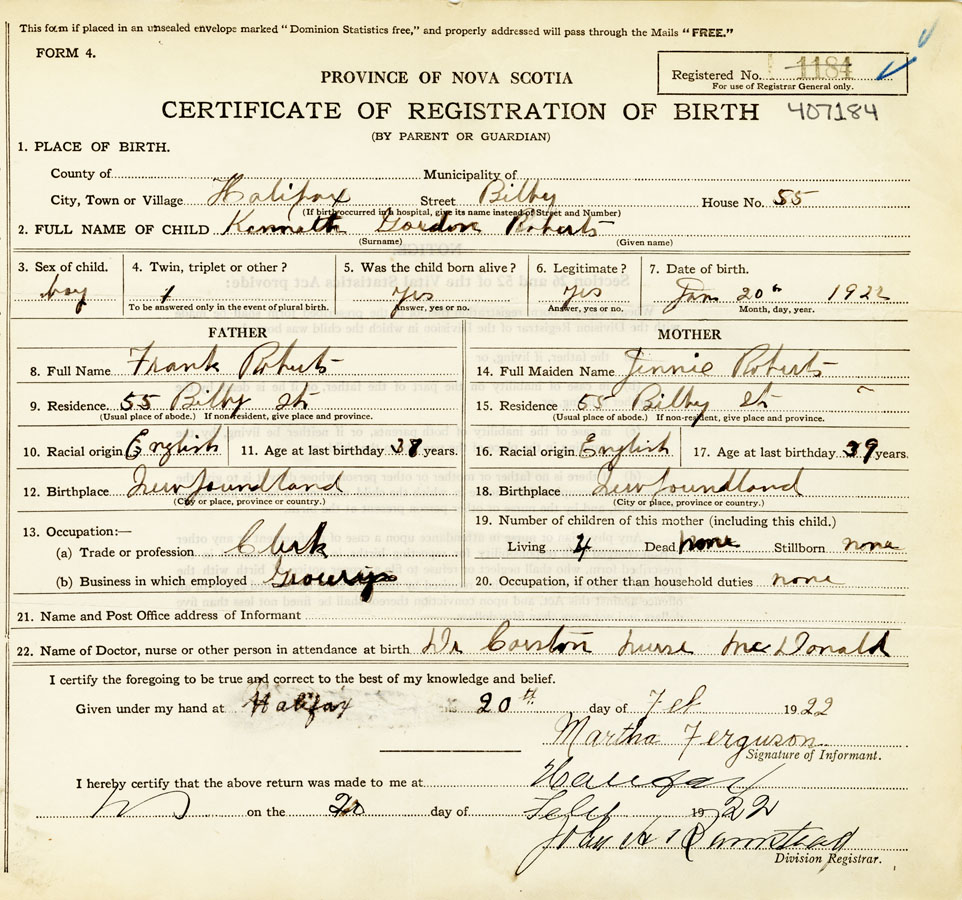 This form if placed in an unsealed envelope marked "Dominion Statistics free," and properly addressed will pass through the Mails "FREE."
FORM 4.
PROVINCE OF NOVA SCOTIA
Registered No. 1184
For use of Registrar General only.
CERTIFICATE OF REGISTRATION OF BIRTH 407184
(BY PARENT OR GUARDIAN)
1. PLACE OF BIRTH.
County of Municipality of
City, Town or Village Halifax Street Bilby House No. 55
(If birth occurred in a hospital, give its name instead of Street and Number)
2. FULL NAME OF CHILD Kenneth Gordon Roberts
(Surname) (Given name)
3. Sex of child. 4. Twin, triplet or other? 5. Was the child born alive? 6. Legitimate? 7. Date of birth.
boy yes yes Jan 20th 1922
To be answered only in the event of plural birth. Answer, yes or no. Answer, yes or no. Month, day, year.
FATHER MOTHER
8. Full Name Frank Roberts 14. Full Maiden Name Jennie Roberts
9. Residence 55 Bilby St 15. Residence 55 Bilby St
(Usual place of abode.) If non-resident, give place and province. (Usual place of abode.) If non-resident, give place and province.
10. Racial origin English 11. Age at last birthday years. 16. Racial origin English 17. Age at last birthday 39 years.
12. Birthplace Newfoundland 18. Birthplace Newfoundland
(City or place, province or country.) (City or place, province or country.)
13. Occupation:— 19. Number of children of this mother (including this child.)
(a) Trade or profession Clerk Living 4 Dead none Stillborn none
(b) Business in which employed 20. Occupation, if other than household duties none
21. Name and Post Office address of Informant
22. Name of Doctor, nurse or other person in attendance at birth Dr Corston nurse McDonald
I certify the foregoing to be true and correct to the best of my knowledge and belief.
Given under my hand at Halifax 20th day of Feb 1922
Martha Ferguson
Signature of Informant.
I hereby certify that the above return was made to me at Halifax
on the 20 day of Feby 1922
John A
Division Registrar.